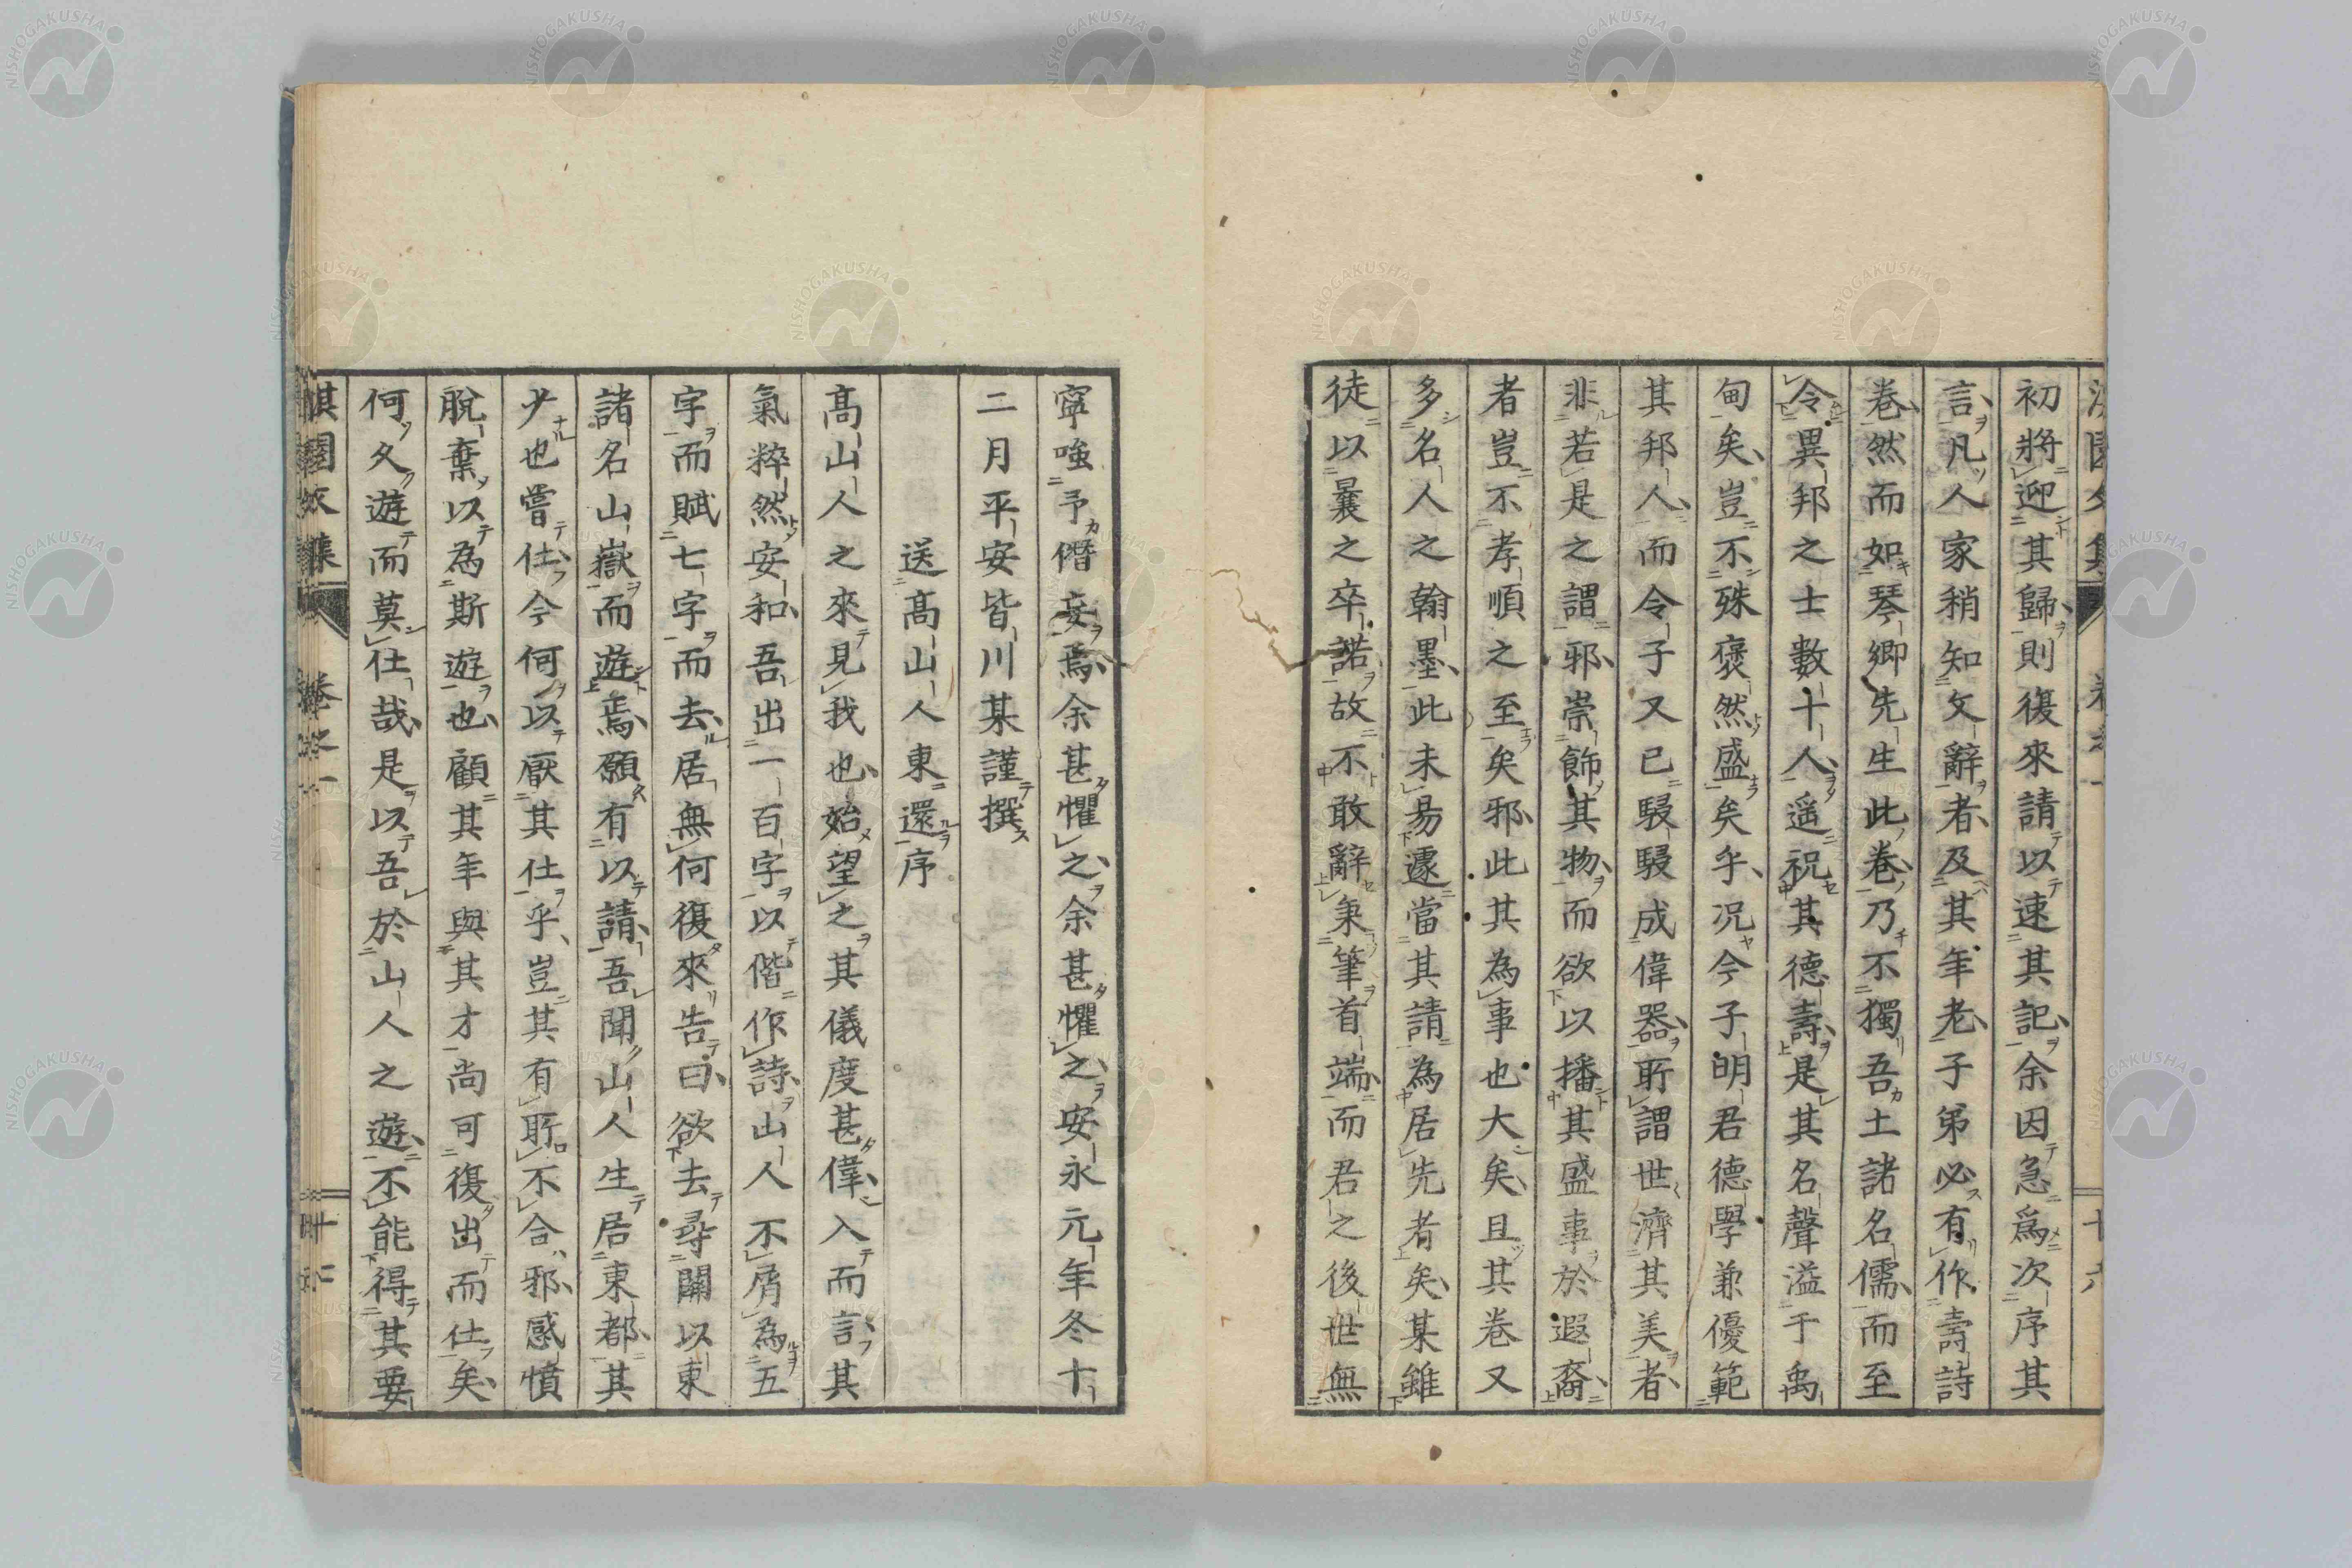 初將迎其歸則復來請以速其記余因急爲次序其
言凡人家稍知文辭者及其年老子弟必有作壽詩
卷然而如琴卿先生此卷乃不獨吾土諸名儒而至
令異邦之士數十人遥祝其德壽是其名聲溢于禹
甸矣豈不殊褒然盛矣乎况今子明君德學兼優範
其邦人而令子又已駸駸成偉器所謂世濟其美者
非若是之謂邪崇飾其物而欲以播其盛事於遐裔
者豈不孝順之至矣邪此其為事也大矣且其卷又
多名人之翰墨此未易遽當其請為居先者矣某雖
徒以曩之卒諾故不敢辭秉筆首端而君之後世無
寧嗤予僭妄焉余甚懼之余甚懼之安永元年冬十
二月平安皆川某謹撰
送髙山人東還序
髙山人之來見我也始望之其儀度甚偉入而言其
氣粹然安和吾出一百字以偕作詩山人不屑為五
字而賦七字而去居無何復來告曰欲去尋關以東
諸名山嶽而遊焉願有以請吾聞山人生居東都其
少也嘗仕今何以厭其仕乎豈其有所不合邪感憤
脫棄以為斯遊也顧其年與其才尚可復出而仕矣
何久遊而莫仕哉是以吾於山人之遊不能得其要
淇園文集 卷之一
NISHOGAKUSHA